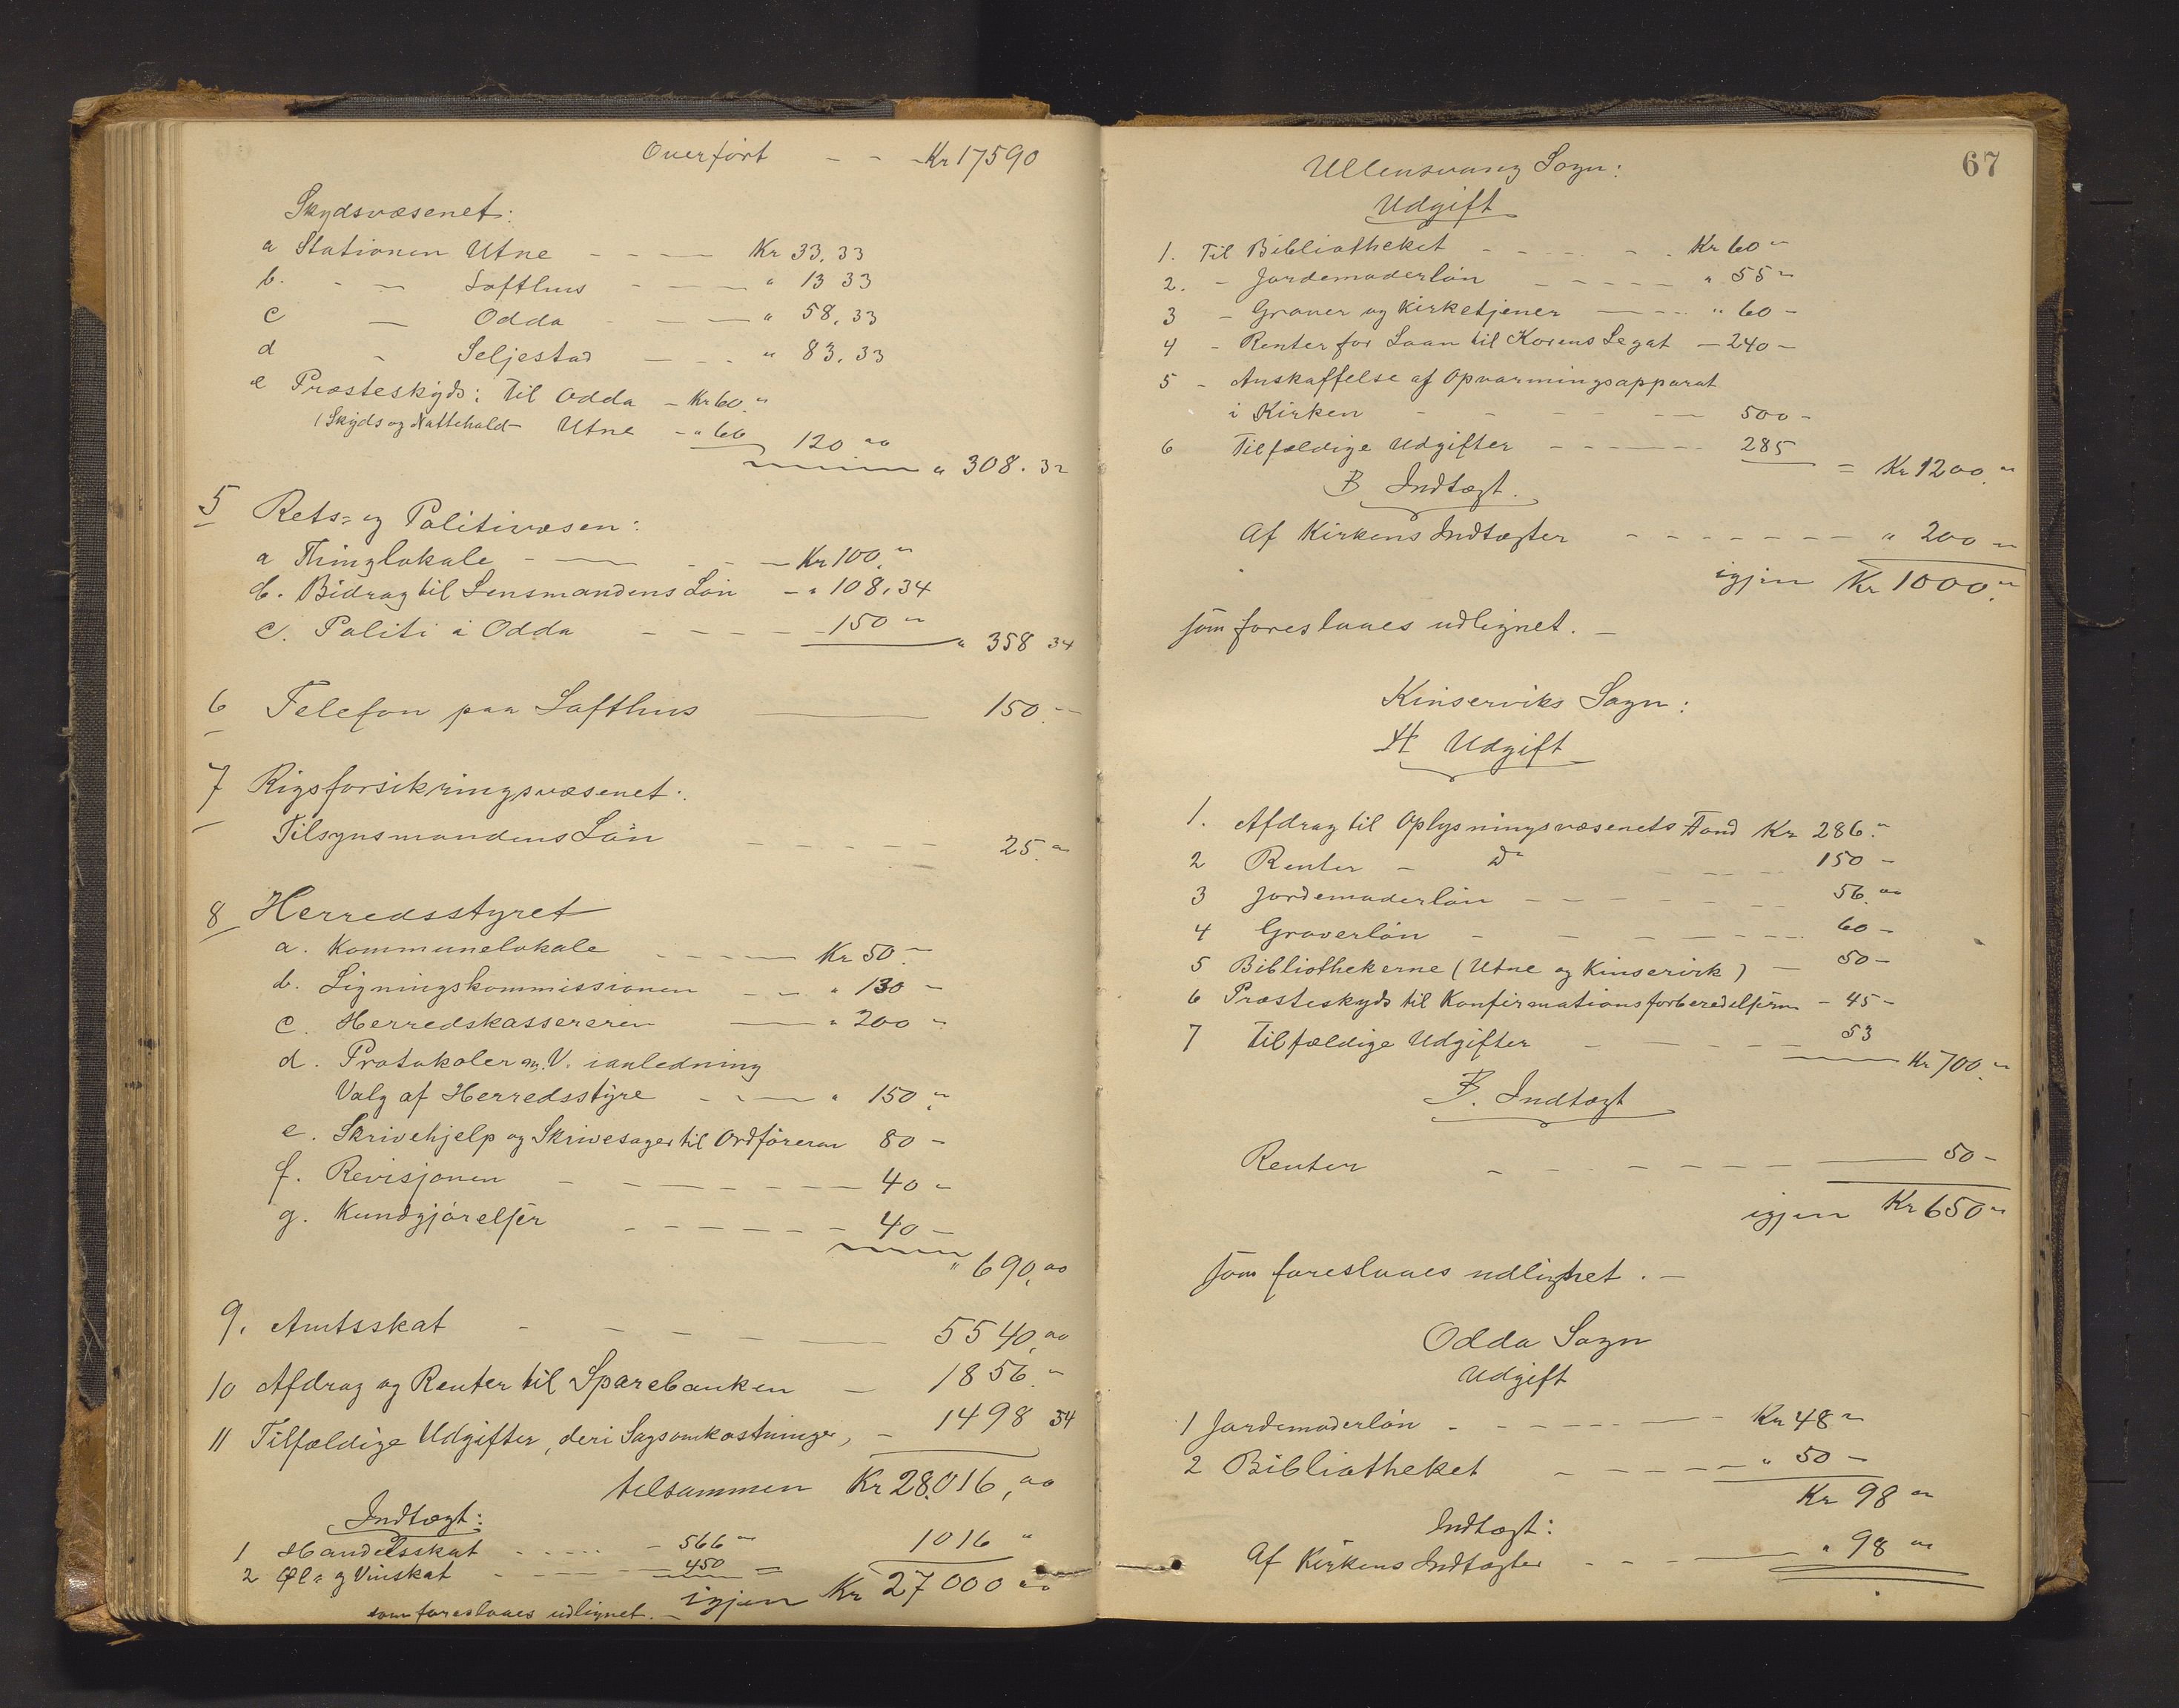 Overført - - - Kr 17590
Skydsvæsenet:
a Stationen Utne - - - Kr 33,33
b. - - Lofthus - - - " 13 33
c - Odda - - - " 58,33
d - Seljestad - - - " 83,33
e Præsteskyds: Til Odda - Kr 60."
(Skyds og Nattehold - Utne - " 60 120 00
" 308.32
5 Rets= og Politivæsen:
a Thinglokale - - - Kr 100."
b. Bidrag til Lensmandens Løn - " 108,34
c. Politi i Odda - - - 150 "
" 358 34
6 Telefon paa Lofthus - 150."
7 Rigsforsikringsvæsenet:
Tilsynsmandens Løn - - - 25."
8 Herredsstyret
a. Kommunelokale - - - Kr 50."
b. Ligningskommissionen - - " 130 -
c. Herredskassereren - " 200 -
d. Protokoler m.V. ianledning
Valg af Herredsstyre - - - " 150 "
e. Skrivehjelp og Skrivesager til Ordføreren 80 -
f. Revisjonen - - - 40 -
g. Kundgjørelser - - - 40 -
" 690,00
9. Amtsskat - - - 5540,00
10 Afdrag og Renter til Sparebanken - 1856."
11 Tilfældige Udgifter, deri Sagsomkostninger, - 1498 34
tilsammen Kr 28.016,00
Indtægt:
1 Handelsskat - - - 566 " 1016 "
2 Øl= og Vinskat - - - 450 =
igjen Kr 27000 00
som foreslaaes udlignet. -
67
Ullensvang Sogn:
Udgift
1. Til Bibliotheket - - - Kr 60 "
2. - Jordemoderløn - - - " 55 "
3 - Graver og Kirketjener - - - " 60 -
4 - Renter for Laan til Korens Legat - 240 -
5 - Anskaffelse af Opvarmingsapparat
i Kirken - - - 500 -
6 Tilfældige Udgifter - - - 285
= Kr 1200."
B Indtægt.
Af Kirkens Indtægter - - - " 200 "
igjen Kr 1000."
som foreslaaes udlignet. -
Kinserviks Sogn:
A Udgift
1. Afdrag til Oplysningsvæsenets Fond Kr 286."
2 Renter - Do - - - 150 -
3 Jordemoderløn - - - 56.00
4 Graverløn - - - 60 -
5 Bibliothekerne (Utne og Kinservik) - 50 -
6 Præsteskyds til Konfirmationsforberedelsen - 45 -
7 Tilfældige Udgifter - - - 53
Kr 700."
B. Indtægt
Renter - - - 50 -
igjen Kr 650 "
som foreslaaes udlignet. -
Odda Sogn
Udgift
1 Jordemoderløn - - - Kr 48 "
2 Bibliotheket - - - " 50 -
Kr 98 "
Indtægt:
Af Kirkens Indtægter - - - " 98 "